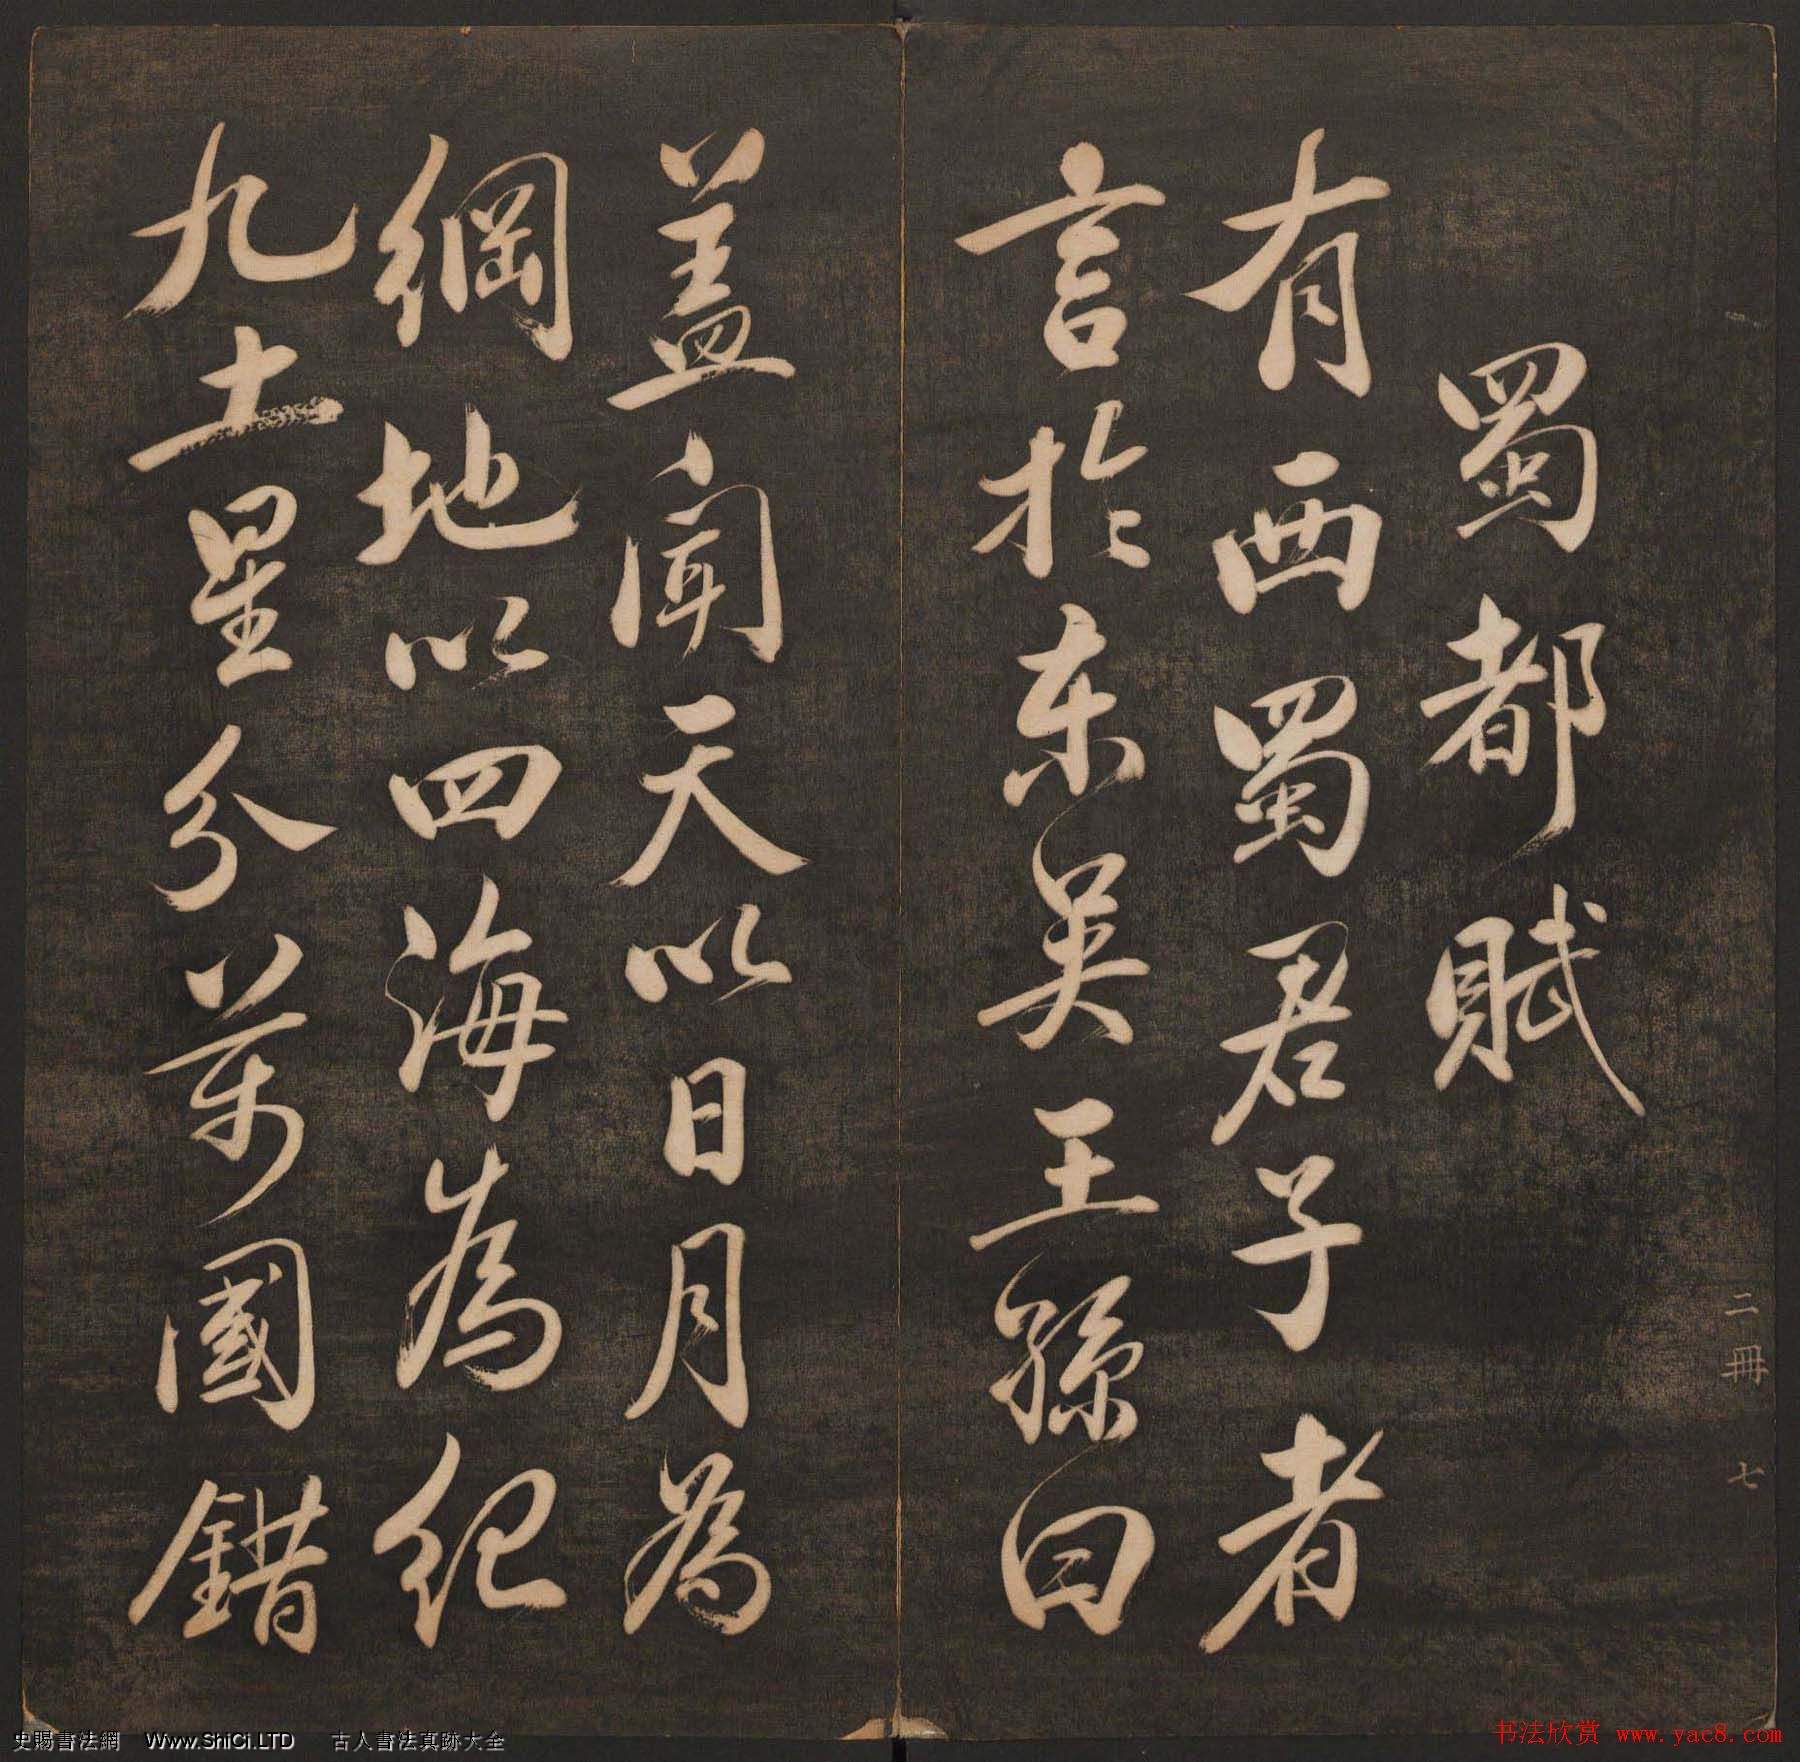 蜀都賦
有西蜀君子者
言於东吴王孫曰
蓋聞天以日月為
綱地以四海為紀
九土星分萬國錯
二冊 七
史賜書法網 Www.ShiCi.LTD 古人書法真跡大全
书法欣赏 www.yac8.com